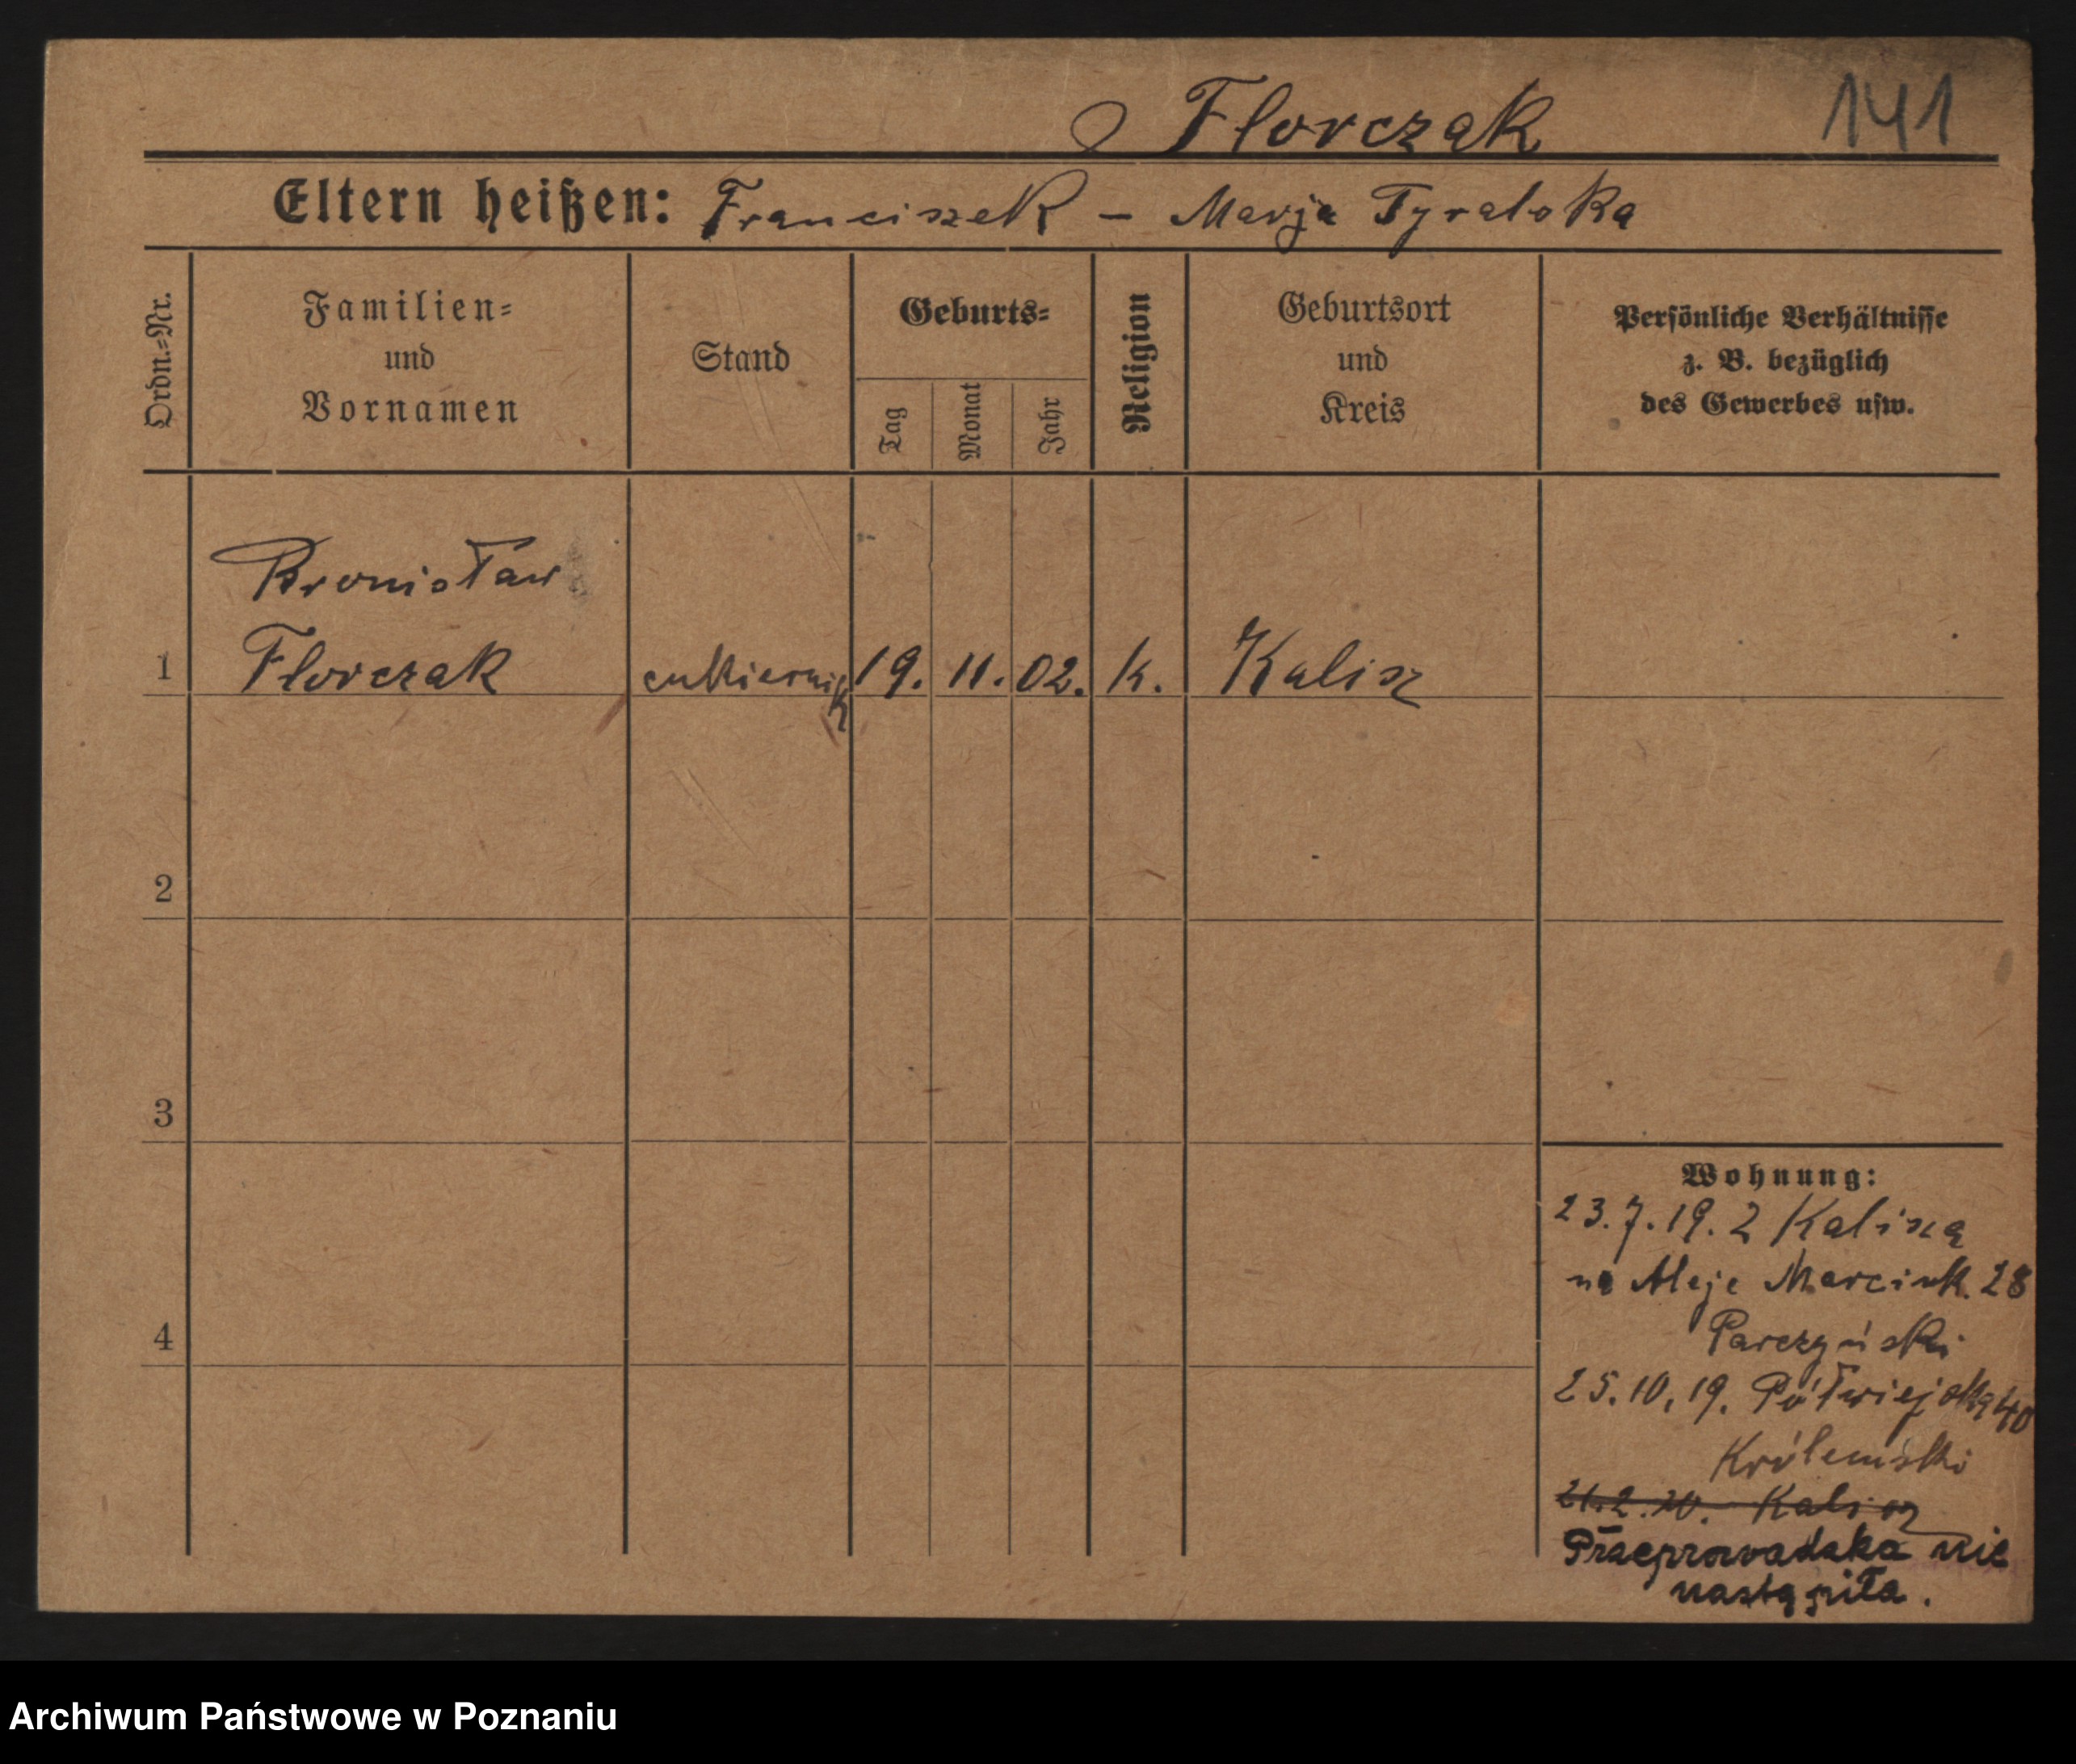 Florczak 141
Eltern heißen: Franciszek – Marja Tyralska
Ordn.=Nr.
Familien=
und
Vornamen
Stand
Geburts=
Tag
Monat
Jahr
Religion
Geburtsort
und
Kreis
Persönliche Verhältnisse
z. B. bezüglich
des Gewerbes usw.
Bronisław
1 Florczak cukiernik 19. 11. 02. k. Kalisz
2
3
4
Wohnung:
23.7.19. z Kalisza
na Aleje Marcink. 28
Parczyński
25.10.19. Półwiejska 40
21.2.20. Kalisz
Przeprowadzka nie
nastąpiła.
Archiwum Państwowe w Poznaniu